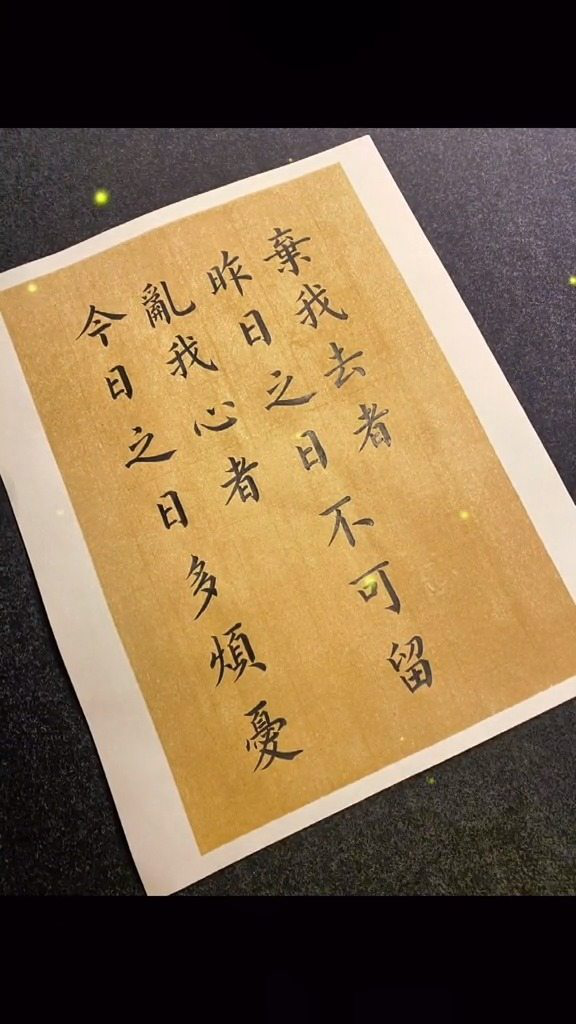 棄我去者
昨日之日不可留
亂我心者
今日之日多煩憂